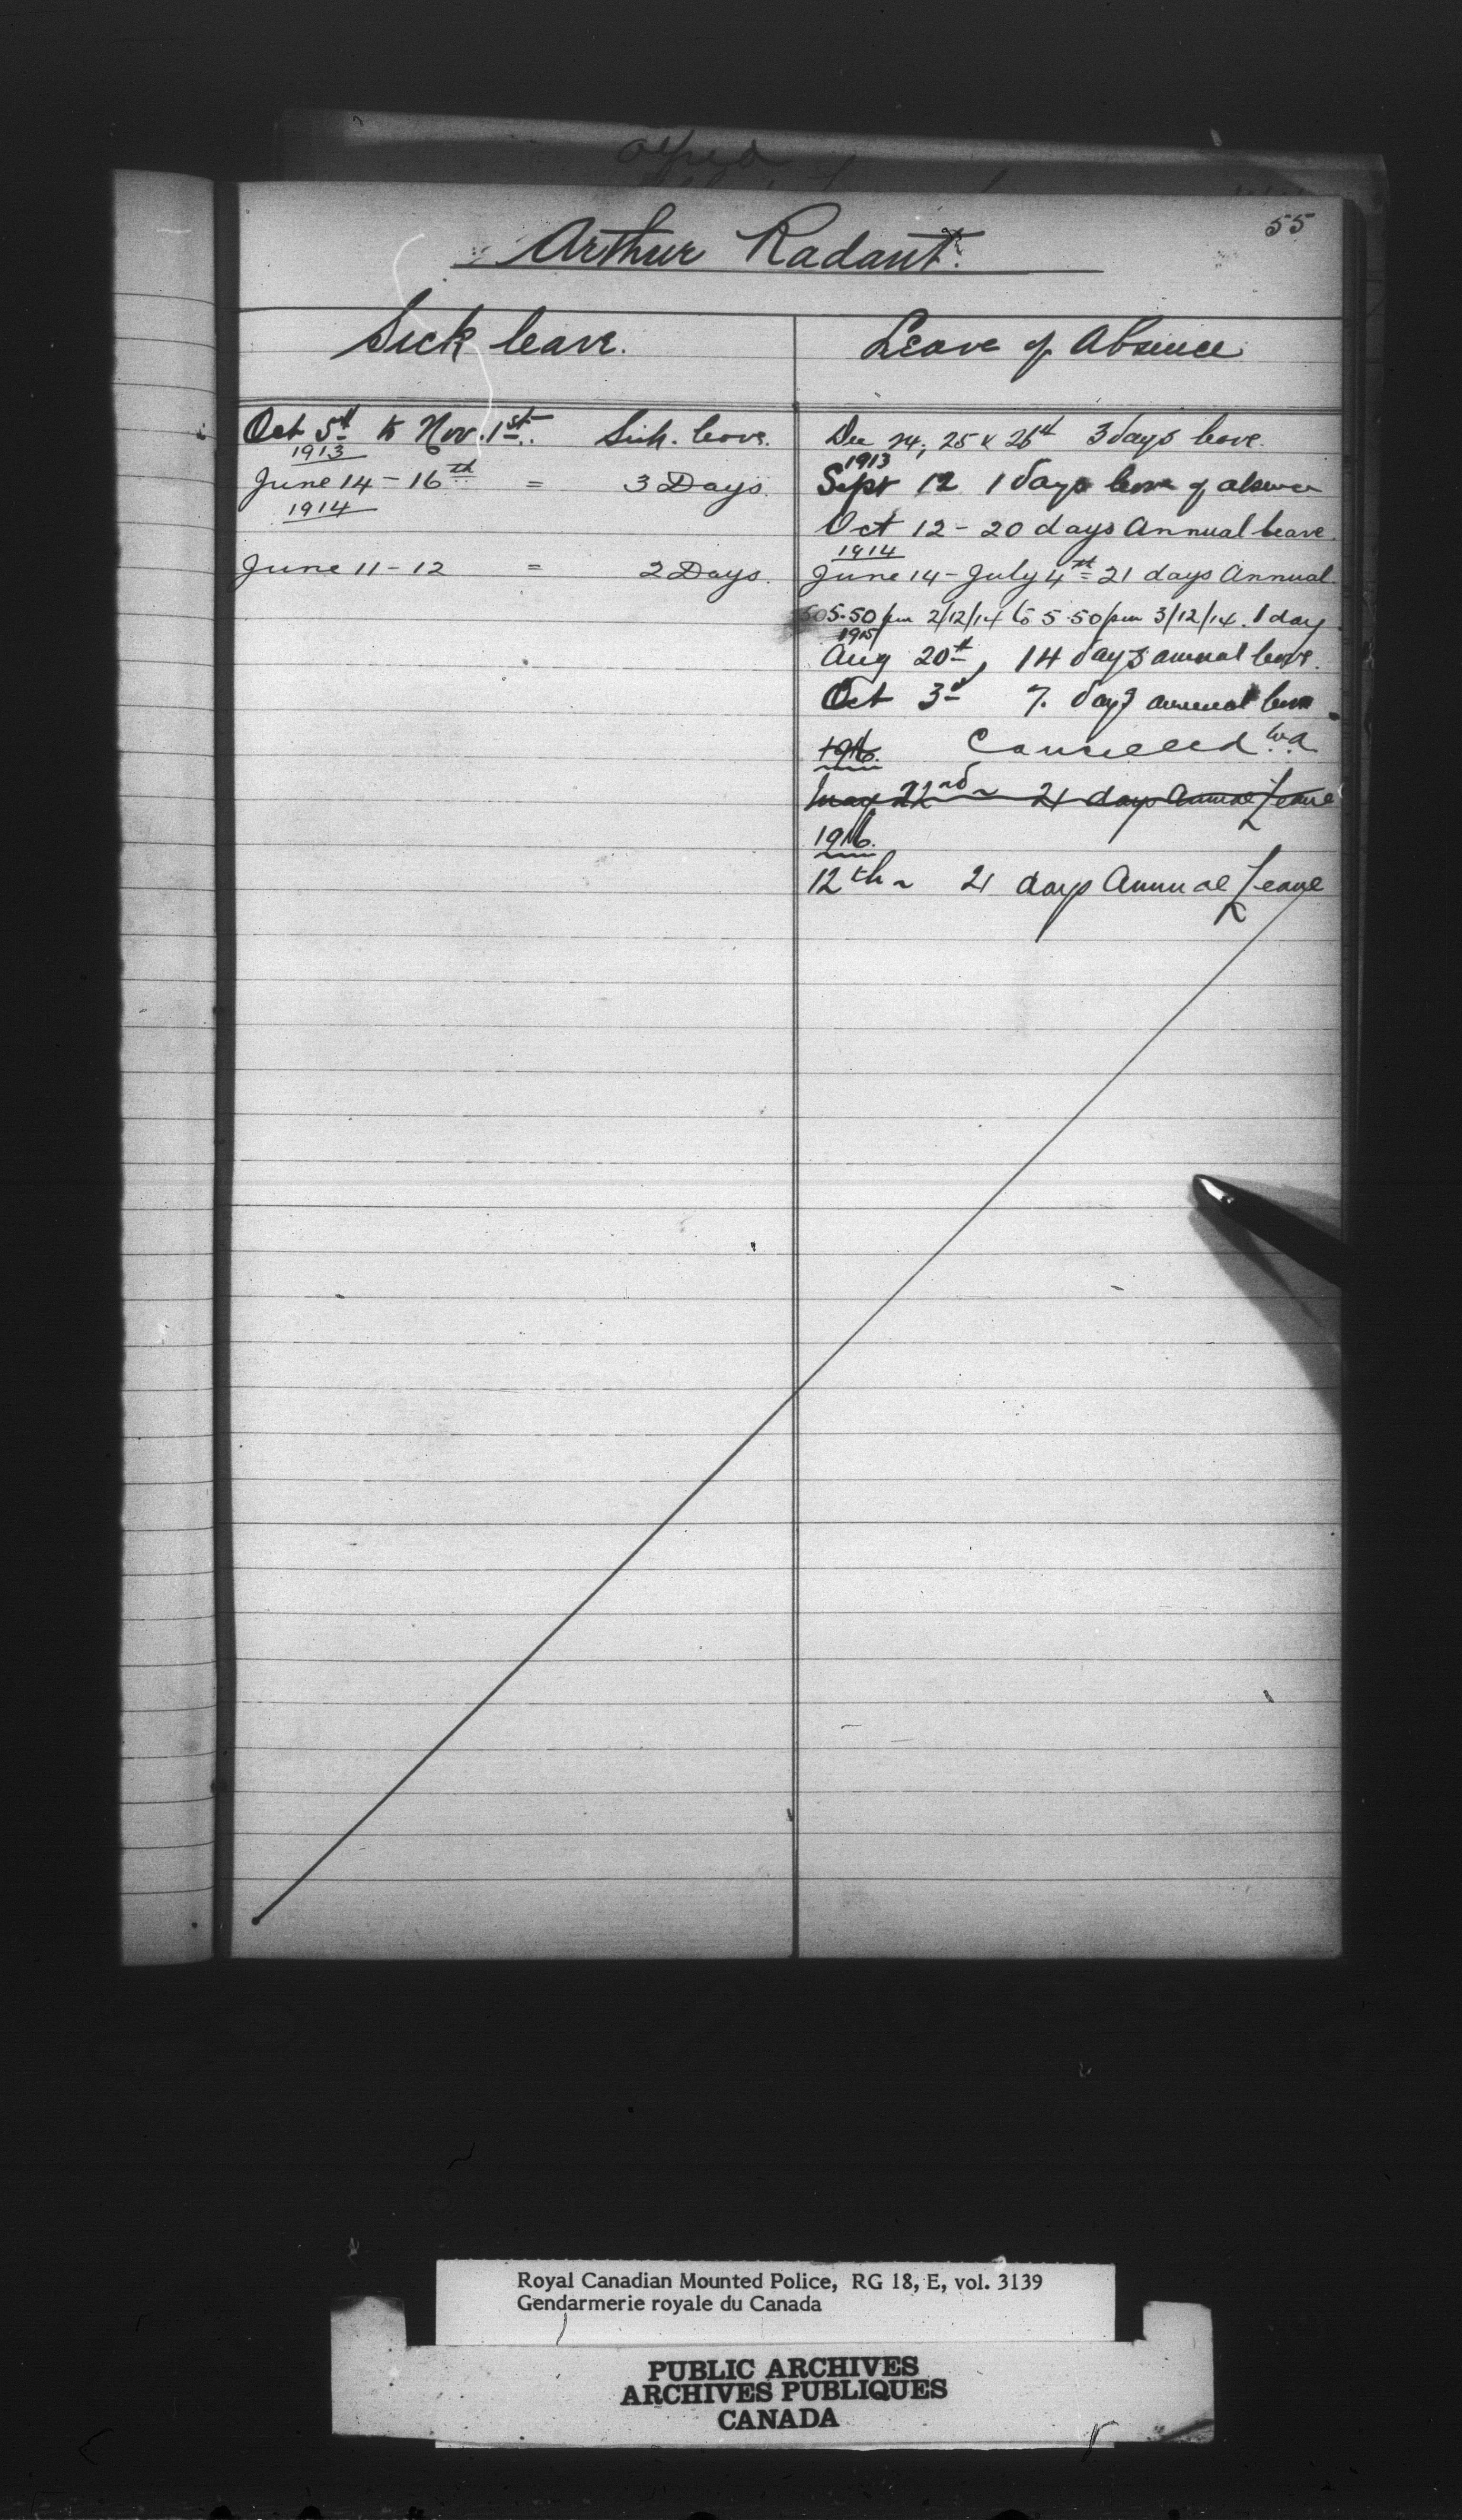 55
Arthur Radant.
Sick leave.
Oct 5th to Nov. 1st. Sick. leave.
1913
June 14 - 16th = 3 Days.
1914
June 11 - 12 = 2 Days.
Leave of Absence
Dec 24, 25 & 26th 3 days leave.
1913
Sept 12 1 days leave of absence
Oct 12 - 20 days Annual leave.
1914
June 14 - July 4th = 21 days Annual.
5.50 pm 2/12/14 to 5.50 pm 3/12/14. 1 day
1915
Aug 20th, 14 days annual leave.
Oct 3d 7. days annual leave
1916. Cancelled
May 22nd ~ 21 days Annual Leave
1916.
12th ~ 21 days Annual Leave
Royal Canadian Mounted Police, RG 18, E, vol. 3139
Gendarmerie royale du Canada
PUBLIC ARCHIVES
ARCHIVES PUBLIQUES
CANADA